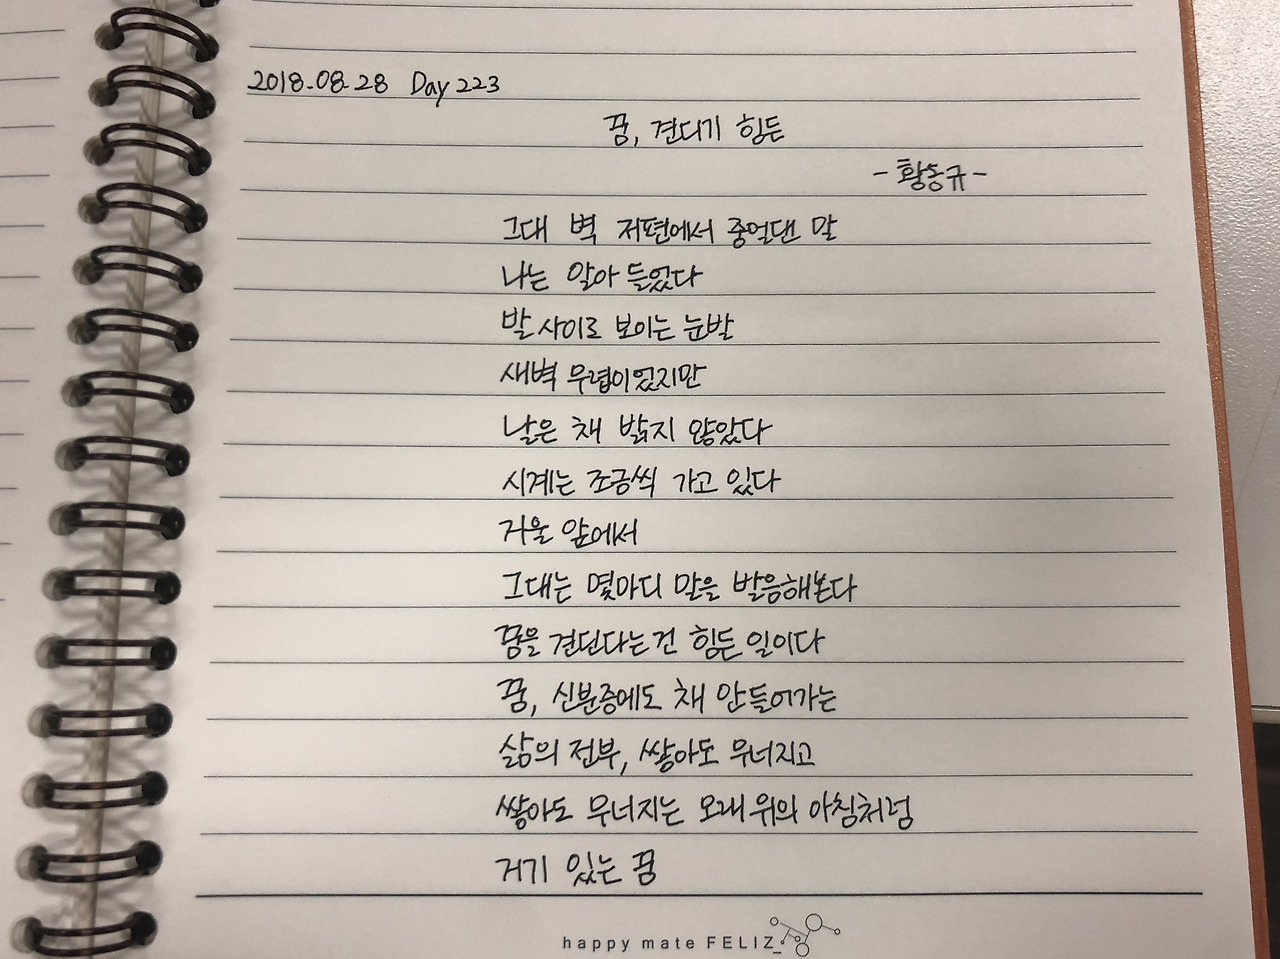 2018.08.28 Day 223
꿈, 견디기 힘든
- 황동규 -
그대 벽 저편에서 중얼댄 말
나는 알아 들었다
발 사이로 보이는 눈발
새벽 무렵이었지만
날은 채 밝지 않았다
시계는 조금씩 가고 있다
거울 앞에서
그대는 몇마디 말을 발음해본다
꿈을 견딘다는 건 힘든 일이다
꿈, 신분증에도 채 안들어가는
삶의 전부, 쌓아도 무너지고
쌓아도 무너지는 모래 위의 아침처럼
거기 있는 꿈
happy mate FELIZ_